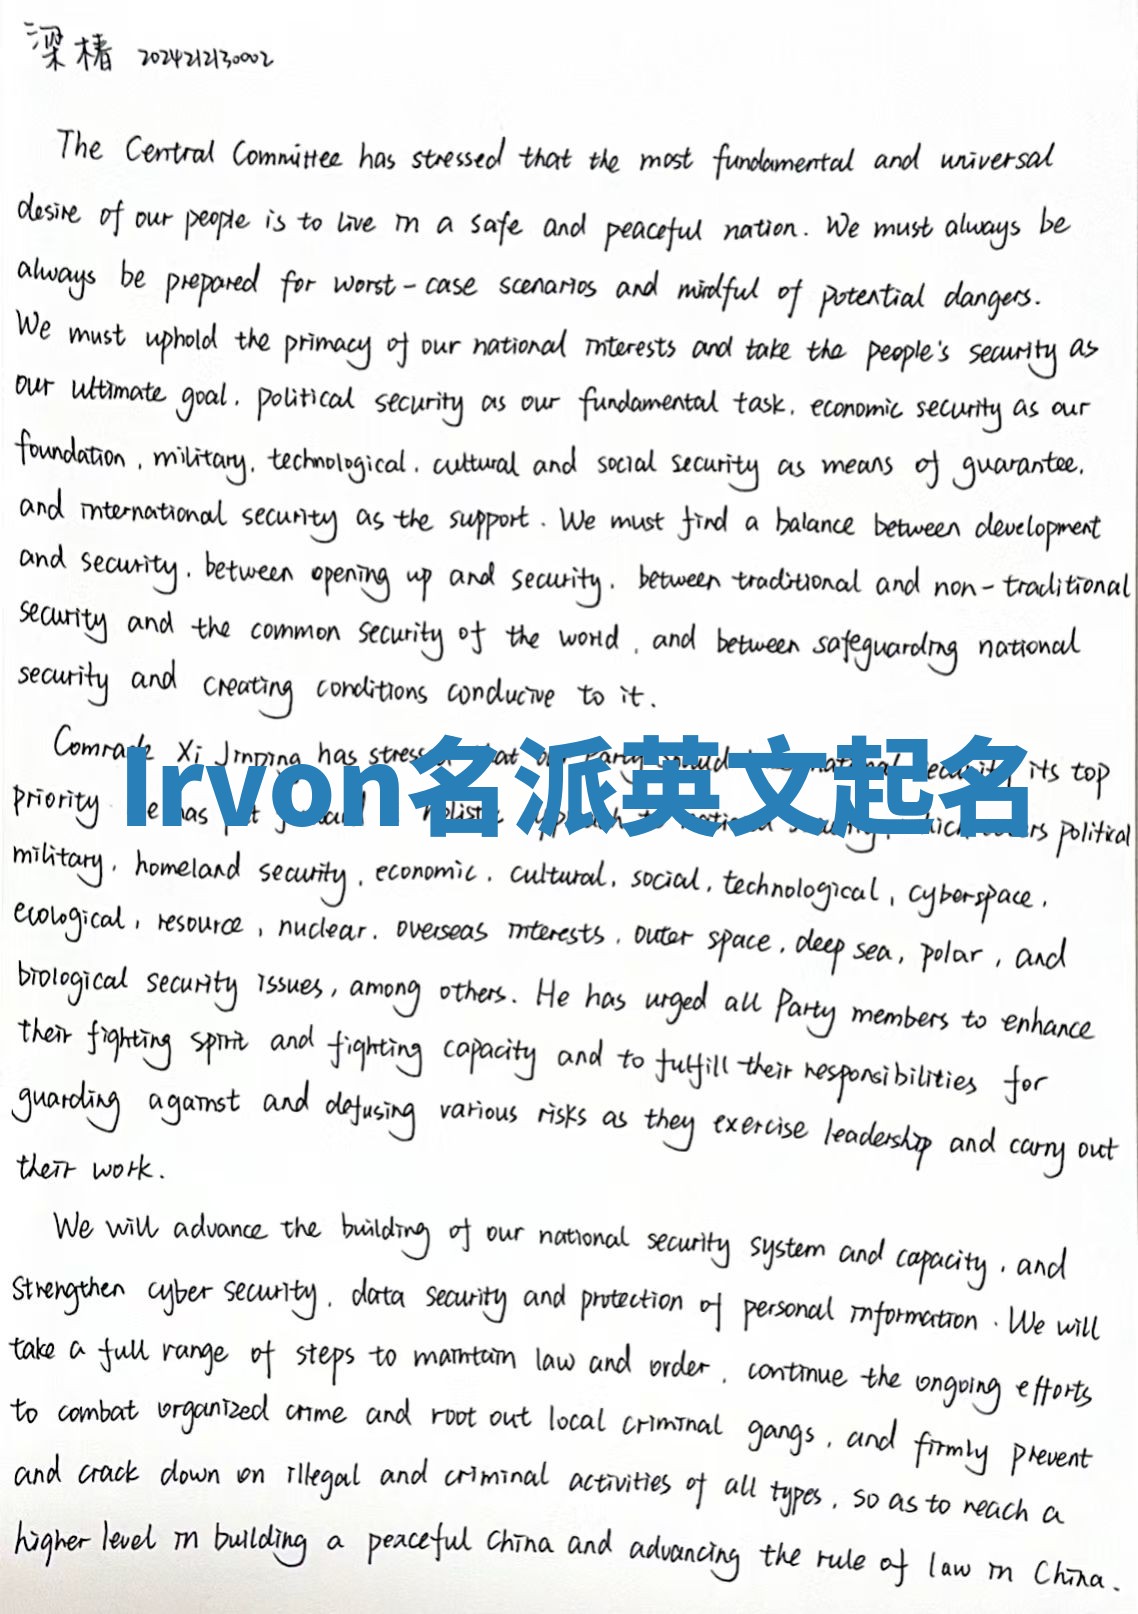 梁椿 2024212130002
The Central Committee has stressed that the most fundamental and universal
desire of our people is to live in a safe and peaceful nation. We must always be
always be prepared for worst-case scenarios and mindful of potential dangers.
We must uphold the primacy of our national interests and take the people's security as
our ultimate goal, political security as our fundamental task, economic security as our
foundation, military, technological, cultural and social security as means of guarantee,
and international security as the support. We must find a balance between development
and security, between opening up and security, between traditional and non-traditional
security and the common security of the world, and between safeguarding national
security and creating conditions conducive to it.
Comrade Xi Jinping has its top
Irvon名派英文起名
priority has political
military, homeland security, economic, cultural, social, technological, cyberspace,
ecological, resource, nuclear, overseas interests, outer space, deep sea, polar, and
biological security issues, among others. He has urged all Party members to enhance
their fighting spirit and fighting capacity and to fulfill their responsibilities for
guarding against and defusing various risks as they exercise leadership and carry out
their work.
We will advance the building of our national security system and capacity, and
strengthen cyber security, data security and protection of personal information. We will
take a full range of steps to maintain law and order, continue the ongoing efforts
to combat organized crime and root out local criminal gangs, and firmly prevent
and crack down on illegal and criminal activities of all types, so as to reach a
higher level in building a peaceful China and advancing the rule of law in China.